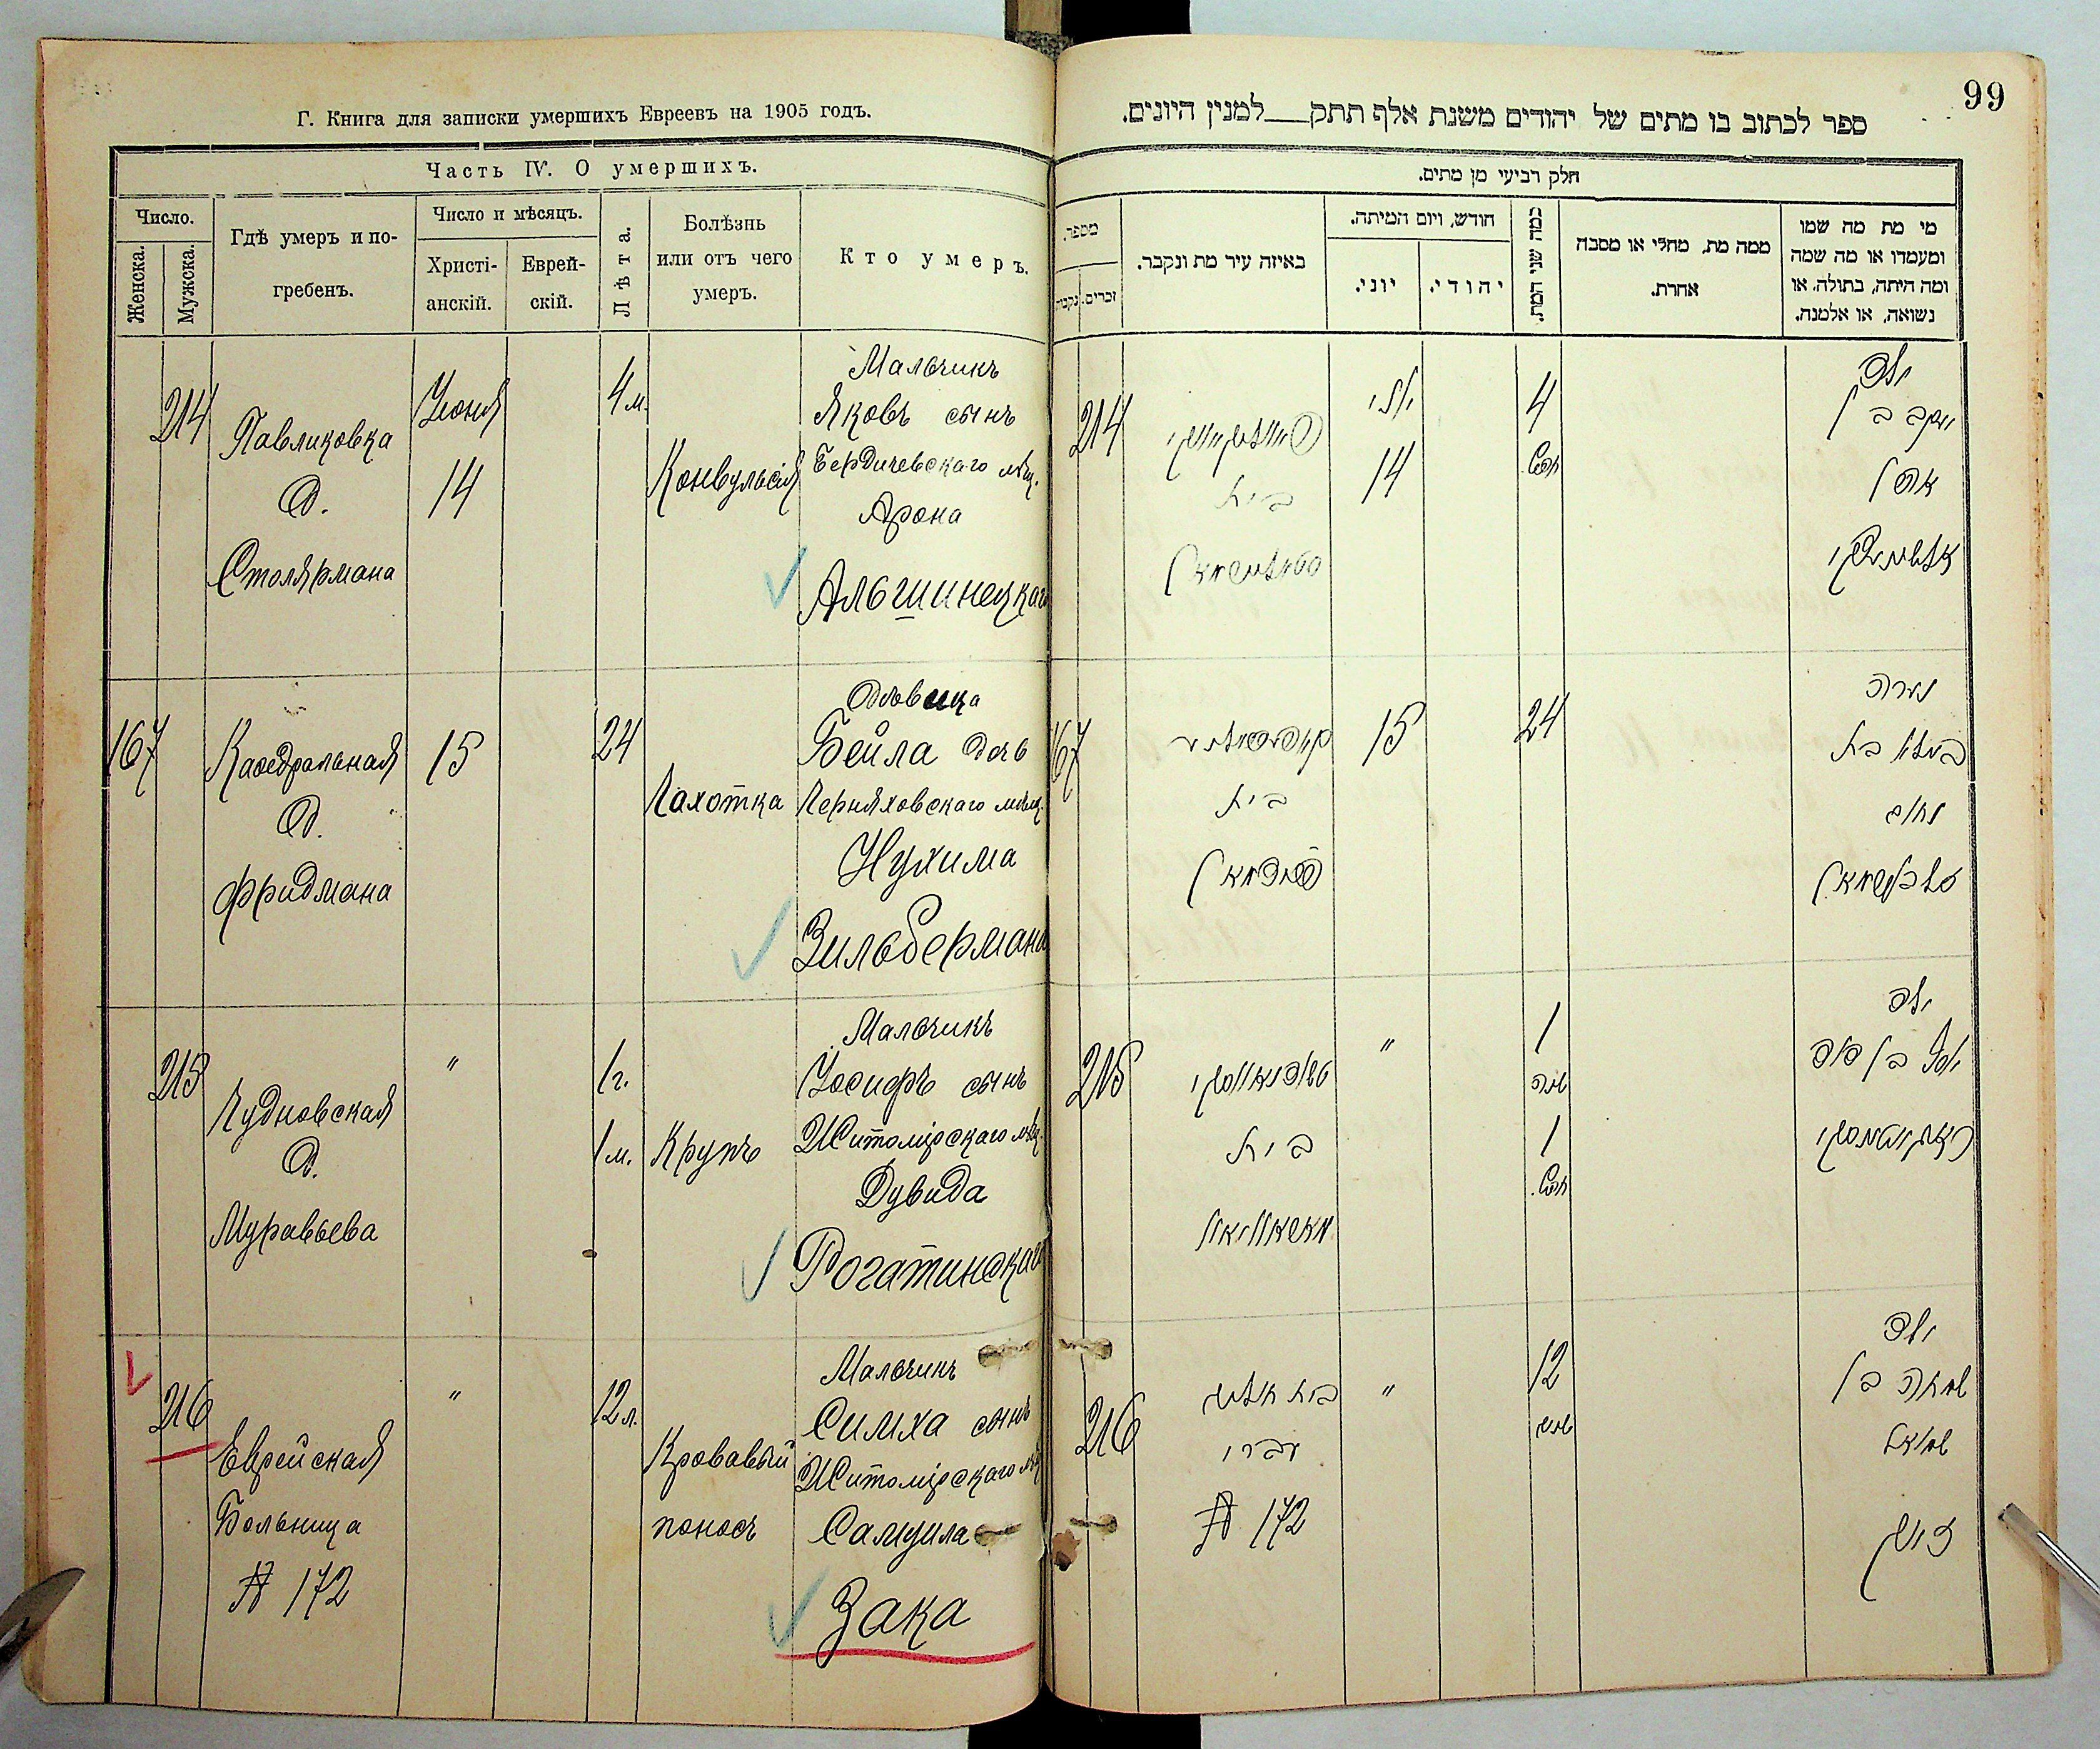 Г. Книга для записки умершихъ Евреевъ на 1905 годъ.
Часть IV. О умершихъ.
Число.
Женска.
Мужска.
Гдѣ умеръ и по-
гребенъ.
Число и мѣсяцъ.
Христі-
анскій.
Еврей-
скій.
Лѣта.
Болѣзнь
или отъ чего
умеръ.
Кто умеръ.
214
Павликовка
д.
Столярмана
Іюня
14
4 м.
Конвульсія
Мальчикъ
Яковъ сынъ
Бердичевскаго мѣщ.
Арона
Альшинецкаго
167
Каѳедральная
д.
Фридмана
15
24
Чахотка
Дѣвица
Бейла дочь
Черняховскаго мѣщ.
Нухима
Зильбермана
215
Чудновская
д.
Муравьева
"
1 г.
1 м.
Крупъ
Мальчикъ
Іосифъ сынъ
Житомірскаго мѣщ.
Дувида
Рогатинскаго
216
Еврейская
Больница
№ 172
"
12 л.
Кровавый
поносъ
Мальчикъ
Симха сынъ
Житомірскаго мѣщ.
Самуила
Зака
99
ספר לכתוב בו מתים של יהודים משנת אלף תתק___למנין היונים.
חלק רביעי מן מתים.
מספר.
זכרים.
נקבות
באיזה עיר מת ונקבר.
חודש, ויום המיתה.
יוני.
יהודי.
כמה שני המת.
ממה מת, מחלי או מסבה
אחרת.
מי מת מה שמו
ומעמדו או מה שמה
ומה היתה, בתולה, או
נשואה, או אלמנה.
214
בית
סטאליארמאן
יוני
14
4
חדש
ילד
יעקב בן
אהרן
167
בית
פרידמאן
15
24
נערה
ביילא בת
נחום
זילבערמאן
215
בית
"
1
שנה
1
חדש
ילד
יוסף בן דוד
216
בית חולים
עברי
№ 172
"
12
שנים
ילד
שמחה בן
שמואל
זאק